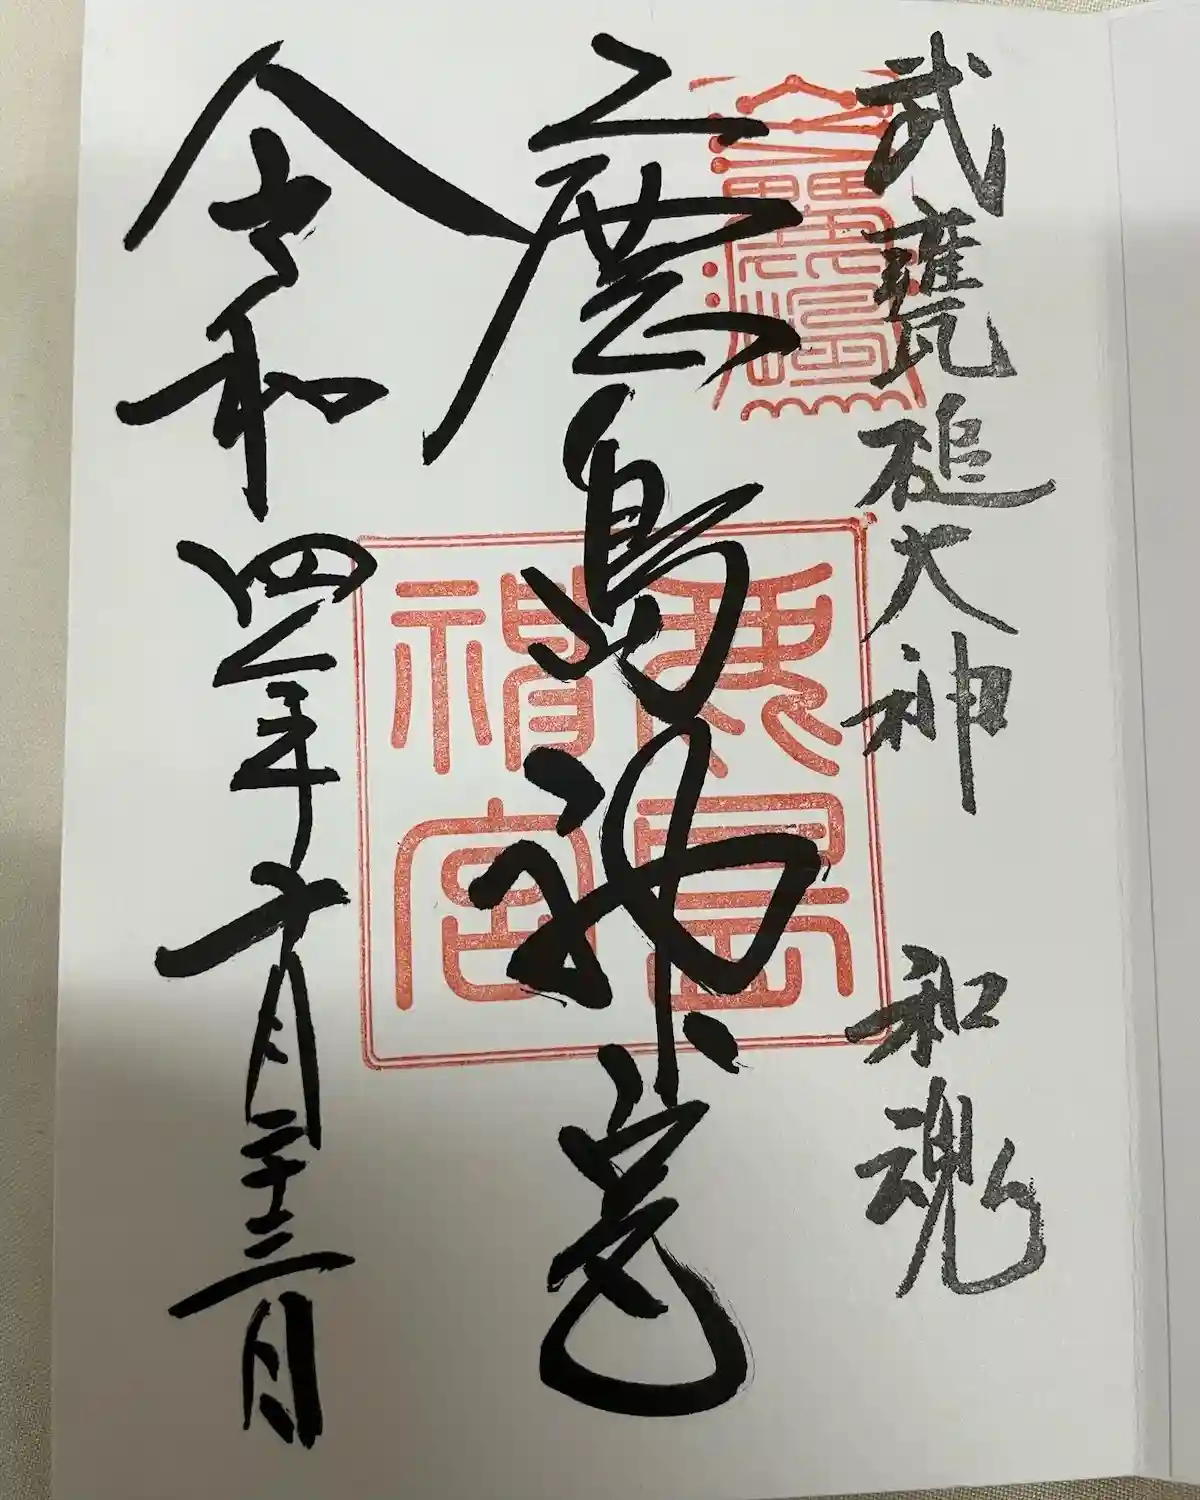 武甕槌大神 和魂
鹿島神宮
令和四年十月二十三日
鹿島
神宮